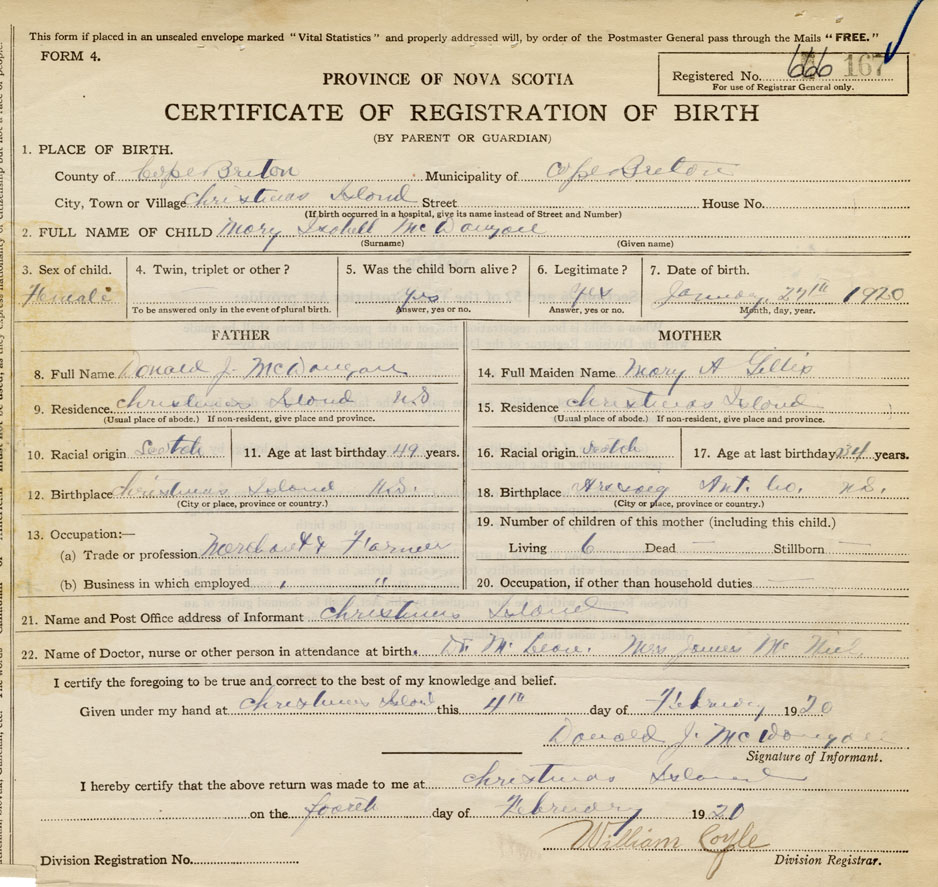 This form if placed in an unsealed envelope marked "Vital Statistics" and properly addressed will, by order of the Postmaster General pass through the Mails "FREE."
FORM 4.
Registered No. 666 167
For use of Registrar General only.
PROVINCE OF NOVA SCOTIA
CERTIFICATE OF REGISTRATION OF BIRTH
(BY PARENT OR GUARDIAN)
1. PLACE OF BIRTH.
County of Cape Breton Municipality of Cape Breton
City, Town or Village Christmas Island Street House No.
(If birth occurred in a hospital, give its name instead of Street and Number)
2. FULL NAME OF CHILD Mary McDougall
(Surname) (Given name)
3. Sex of child. 4. Twin, triplet or other? 5. Was the child born alive? 6. Legitimate? 7. Date of birth.
Female Yes Yes January 27th 1920
To be answered only in the event of plural birth. Answer, yes or no. Answer, yes or no. Month, day, year.
FATHER MOTHER
8. Full Name Donald J. McDougall 14. Full Maiden Name Mary A Gillis
9. Residence Christmas Island N.S 15. Residence Christmas Island
(Usual place of abode.) If non-resident, give place and province. (Usual place of abode.) If non-resident, give place and province.
10. Racial origin Scotch 11. Age at last birthday 49 years. 16. Racial origin Scotch 17. Age at last birthday 34 years.
12. Birthplace Christmas Island N.S. 18. Birthplace Arisaig Ant. Co. N.S.
(City or place, province or country.) (City or place, province or country.)
13. Occupation:— 19. Number of children of this mother (including this child.)
(a) Trade or profession Merchant & Farmer Living 6 Dead — Stillborn —
(b) Business in which employed " " 20. Occupation, if other than household duties. —
21. Name and Post Office address of Informant Christmas Island
22. Name of Doctor, nurse or other person in attendance at birth. Dr. McLean. Mrs James McNeil
I certify the foregoing to be true and correct to the best of my knowledge and belief.
Given under my hand at Christmas Island this 4th day of February 1920
Donald J. McDougall
Signature of Informant.
I hereby certify that the above return was made to me at Christmas Island
on the fourth day of February 1920
William Coyle
Division Registration No. Division Registrar.